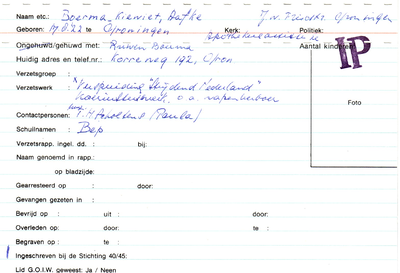 Naam etc.: Boerma-Kiewiet, Aafke J.v. Groningen
Geboren: 17.8.22 te Groningen Kerk: Politiek:
apothekersassistente
Ongehuwd/gehuwd met: Boerma Aantal kinderen
Huidig adres en telef.nr.: Korreweg 192, Gron
IP
Verzetsgroep :
Verzetswerk : "Verspreiding "Strijdend Nederland"
Koerierswerk, o.a. wapenvervoer
Foto
Contactpersonen: (Paula)
Schuilnamen : Bep
Verzetsrapp. ingel. dd. : bij:
Naam genoemd in rapp.:
op bladzijde:
Gearresteerd op : door:
Gevangen gezeten in :
Bevrijd op : uit : door:
Overleden op: door: te :
Begraven op : te :
Ingeschreven bij de Stichting 40/45:
Lid G.O.I.W. geweest: Ja / Neen